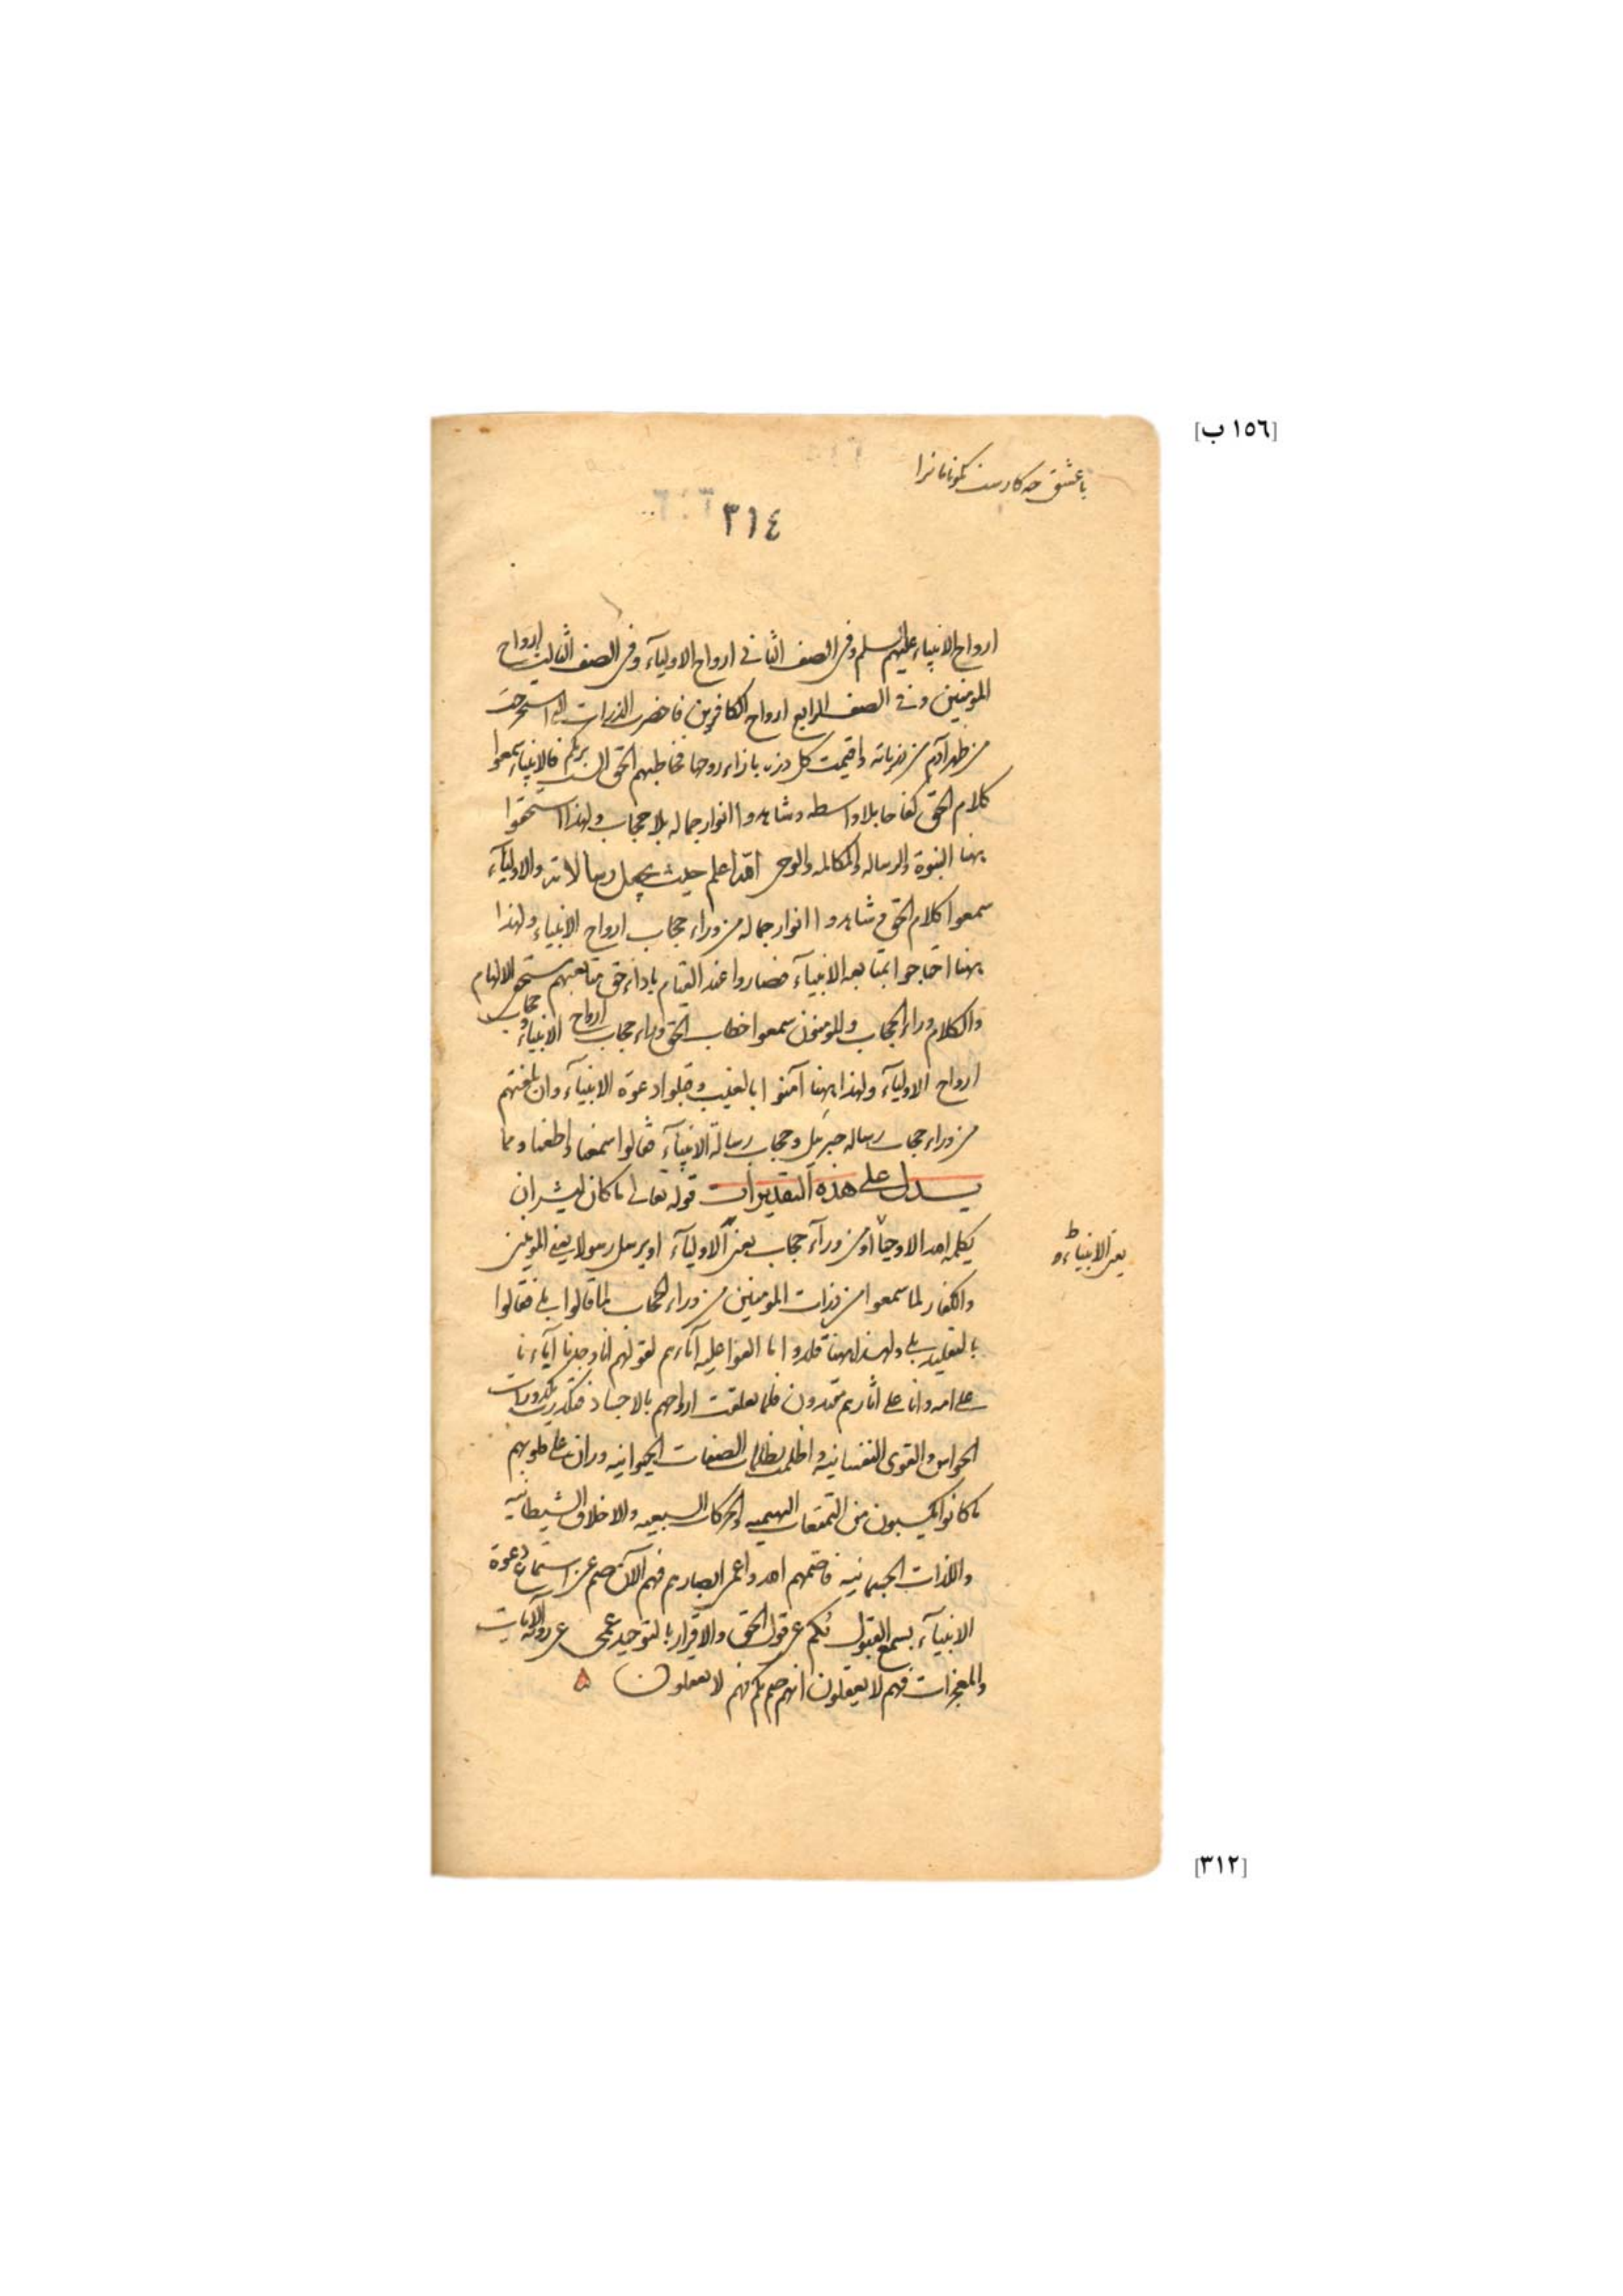 [١٥٦ ب]
با عشق چه کارست نکونامانرا
٣١٤
ارواح الانبياء عليهم السلم وفى الصف الثانى ارواح الاوليآء وفى الصف الثالث ارواح
المؤمنين وفى الصف الرابع ارواح الكافرين فاحضرت الذرات التى استخرجت
من ظهر آدم من ذرياته واقيمت كل ذره بازاء روحها فخاطبهم الحق الست بربكم فالانبياء سمعوا
كلام الحق كفاحا بلا واسطه وشاهدوا انوار جماله بلا حجاب ولهذا استحقوا
ههنا النبوة والرساله والمكالمه والوحى الله اعلم حيث يجعل رسالاته والاوليآء
سمعوا كلام الحق وشاهدوا انوار جماله من وراء حجاب ارواح الانبياء ولهذا
ههنا احتاجوا بمتابعه الانبيآء فصاروا عند القيام باداء حق متابعتهم مستحق الالهام
والكلام وراء الحجاب والمؤمنون سمعوا خطاب الحق وراء حجاب ارواح الانبياء وحجاب
ارواح الاوليآء ولهذا ههنا آمنوا بالغيب وقبلوا دعوة الانبيآء وان بلغتهم
من وراء حجاب رساله جبريل وحجاب رسالة الانبيآء فقالوا سمعنا واطعنا ومما
يدل على هذه التقديرات قوله تعالى ما كان لبشر ان
يكلمه الله الا وحيا او من ورآء حجاب يعنى الاوليآء او يرسل رسولا يعنى المؤمنين
يعنى الانبياء ط و
والكفار لما سمعوا من ذرات المؤمنين من وراء الحجاب لما قالوا بلى فقالوا
بالتقليد بلى ولهذا ههنا قلدوا ما الفوا عليه آباءهم لقولهم انا وجدنا آباءنا
على امه وانا على اثارهم مقتدون فلما تعلقت ارواحهم بالاجساد فتكدرت بكدورات
الحواس والقوى النفسانيه واظلمت بظلمات الصفات الحيوانيه وران على قلوبهم
ما كانوا يكسبون من التمتعات البهيميه والحركات السبعيه والاخلاق الشيطانيه
واللذات الجسمانيه فاصمهم الله واعمى ابصارهم فهم الآن صم عن استماع دعوة
الانبيآء بسمع القبول بكم عن قول الحق والاقرار بالتوحيد عمى عن رؤية الآيات
والمعجزات فهم لا يعقلون انهم صم بكم فهم لا يعقلون
[٣١٢]